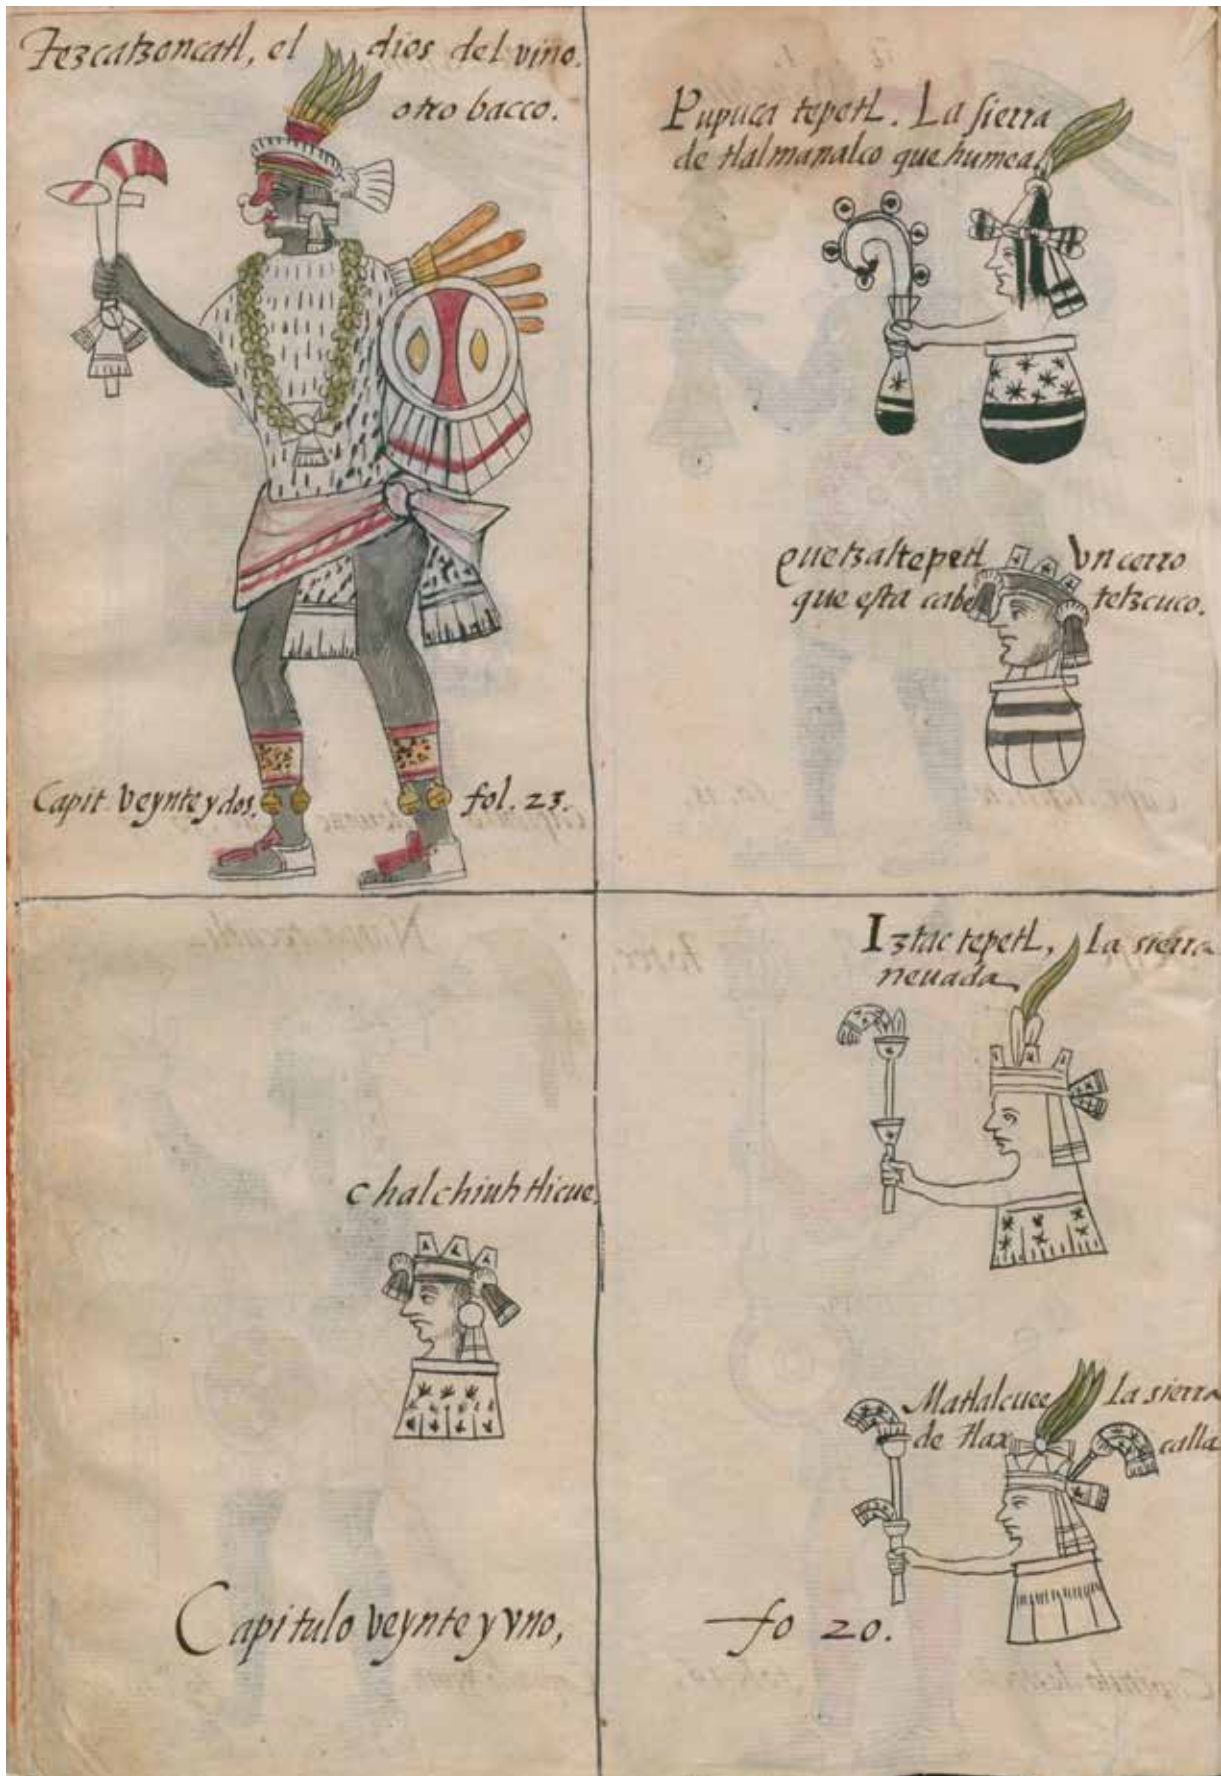 Tezcatzoncatl, el dios del vino.
otro bacco.
Capit. veynte y dos. fol. 23.
Pupuca tepetl. La sierra
de tlalmanalco que humea.
quetzaltepetl Vn cerro
que esta cabe tetzcuco.
chalchiuhtlicue.
Capitulo veynte y vno,
Iztac tepetl, La sierra
neuada.
Matlalcuee La sierra
de tlax calla
fo 20.